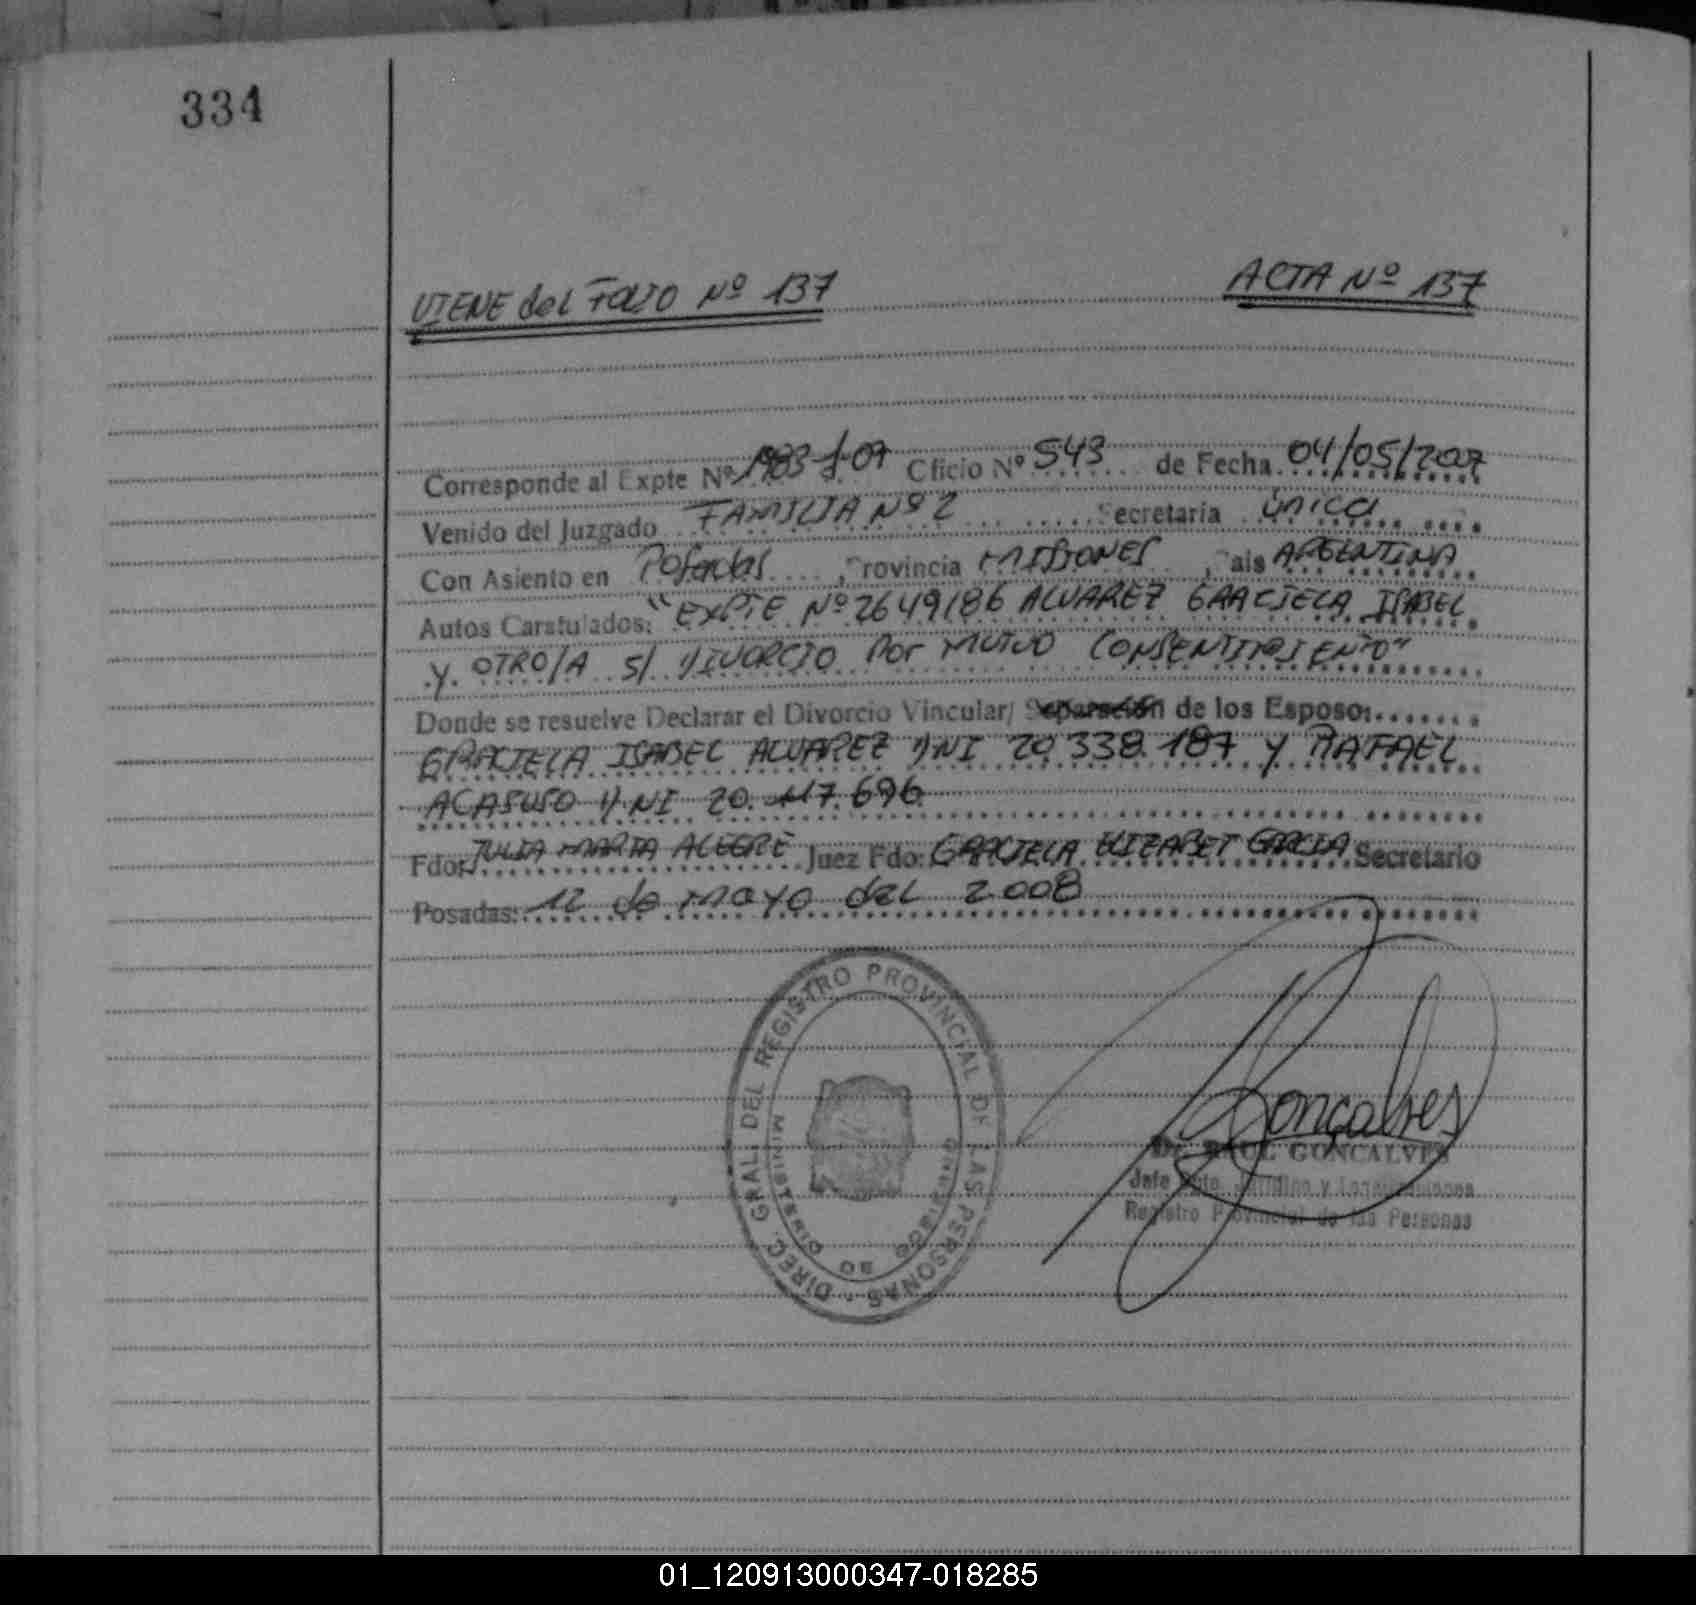 334
VIENE del FOLIO Nº 137
ACTA Nº 137
Corresponde al Expte Nº 1983-f-07 Oficio Nº 543 de Fecha 04/05/2007
Venido del Juzgado FAMILIA Nº 2 Secretaria Única
Con Asiento en Posadas, Provincia MISIONES, Pais ARGENTINA
Autos Caratulados: "EXPTE Nº 2649/86 ALVAREZ GRACIELA ISABEL
Y OTRO/A S/ DIVORCIO Por MUTUO CONSENTIMIENTO"
Donde se resuelve Declarar el Divorcio Vincular/ Separación de los Esposo:
GRACIELA ISABEL ALVAREZ DNI 20.338.187 Y RAFAEL
ACASUSO D.NI 20.117.696
Fdo: JULIA MARIA ALEGRE Juez Fdo: GRACIELA ELIZABET GARCIA Secretario
Posadas: 12 de mayo del 2008
DIREC. GRAL. DEL REGISTRO PROVINCIAL DE LAS PERSONAS
MINISTERIO DE GOBIERNO
Gonçalves
Dr. RAUL GONCALVES
Jefe Dpto. Jurídico y
Registro Provincial de las Personas
01_120913000347-018285